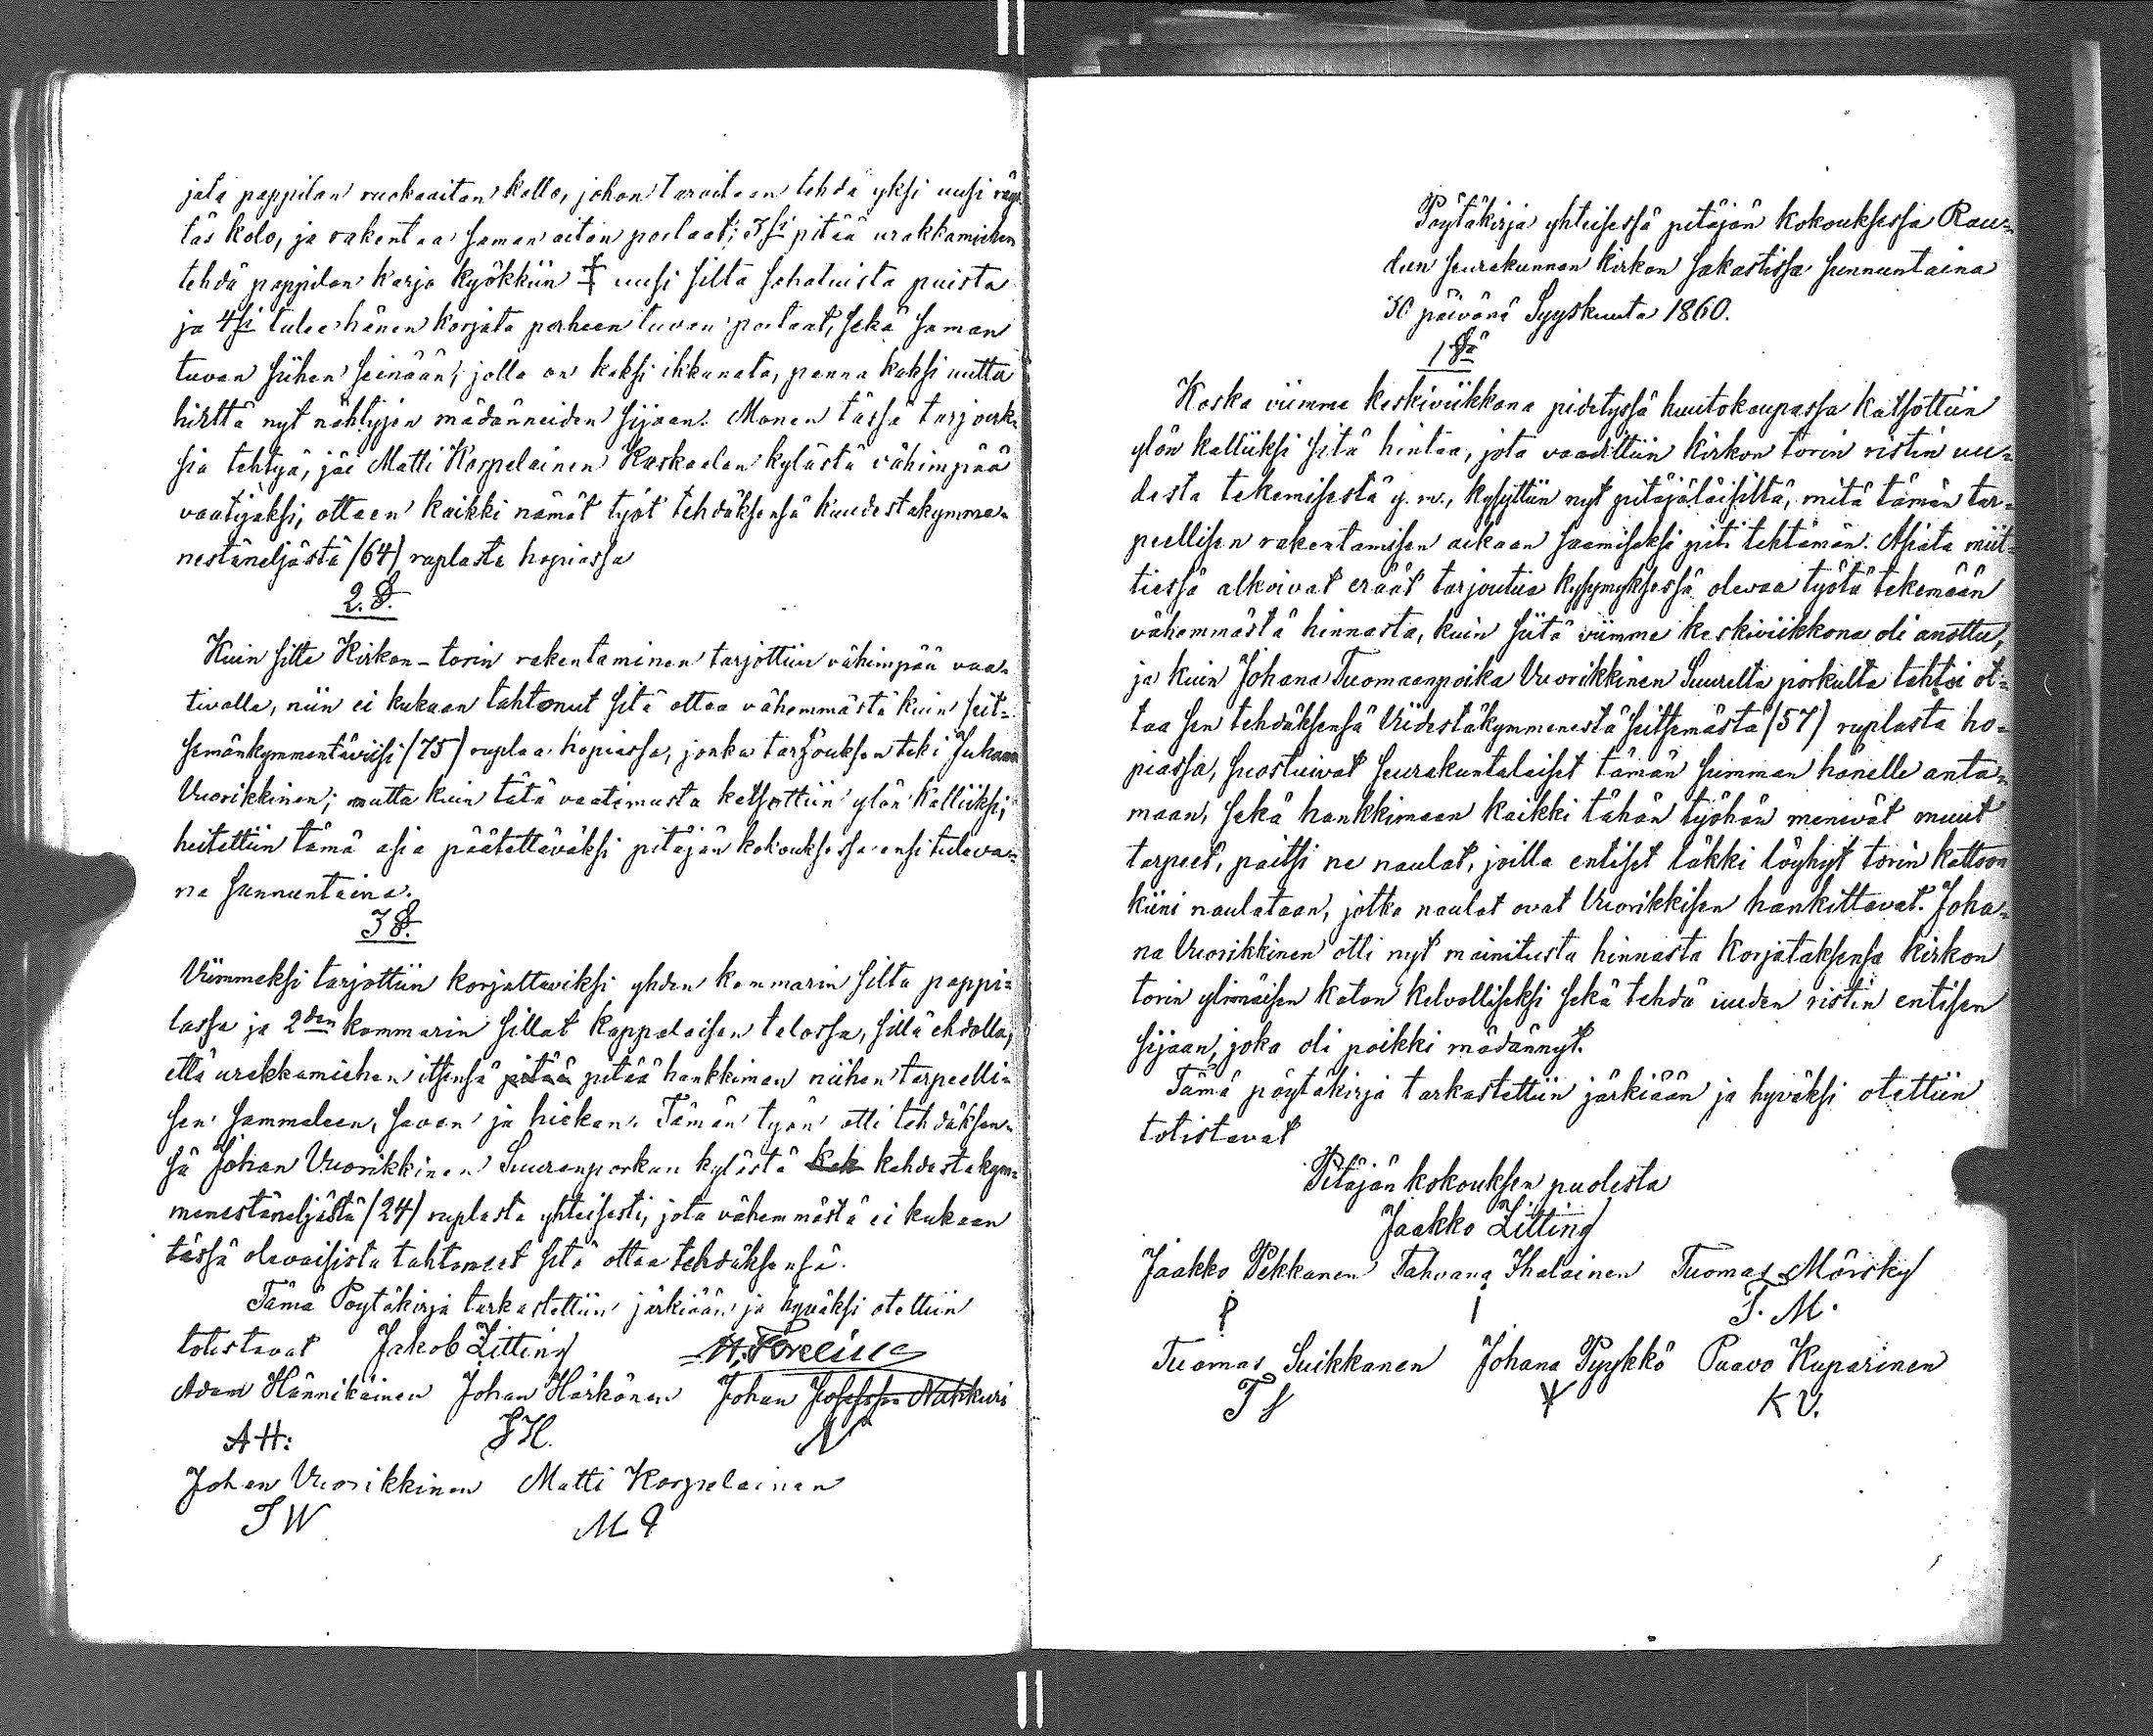 jata pappilan ruokaaitan katto, johon tarvitaan tehdä yksi uusi räys-
täs kolo, ja rakentaa saman aitan portaat; 3ksi pitää urakkamiehen
tehdä pappilan karja kyökkiin uusi silta sahatuista puista
ja 4ksi tulee hänen korjata perheen tuvan portaat, sekä saman
tuvan siihen seinään, jolla on kaksi ikkunata, panna kaksi uutta
hirttä nyt nähtyjen mädänneiden sijaan. Monen tässä tarjouk-
sia tehtyä, jäi Matti Korpelainen Raskaalan kylästä vähimpää
vaatijaksi, ottaen kaikki nämät työt tehdäksensä kuudestakymme-
nestäneljästä (64) ruplasta hopiassa
2. §.
Kuin sitte Kirkon-torin rakentaminen tarjottiin vähimpää vaa-
tivalle, niin ei kukaan tahtonut sitä ottaa vähemmästä kuin seit-
semänkymmentäviisi (75) ruplaa hopiassa, jonka tarjouksen teki Juhana
Vuorikkinen; mutta kuin tätä vaatimusta katsottiin ylön kalliiksi,
heitettiin tämä asia päätettäväksi pitäjän kokouksessa ensi tuleva-
na sunnuntaina.
3 §.
Viimmeksi tarjottiin korjattaviksi yhden kammarin silta pappi-
lassa ja 2den kammarin sillat kappalaisen talossa, sillä ehdolla,
että urakkamiehen itsensä pitää pitää hankkiman niihen tarpeelli-
sen sammaleen, saven ja hiekan. Tämän työn otti tehdäksen-
sä Johan Vuorikkinen Suurenporkun kylästä kah kahdestakym-
menestäneljästä (24) ruplasta yhteisesti, jota vähemmästä ei kukaan
tässä olevaisista tahtoneet sitä ottaa tehdäksensä.
Tämä Pöytäkirja tarkastettiin järkiään ja hyväksi otettiin
totistavat Jakob Litting
Adam Hännikäinen Johan Härkönen Johan Josefsson Nakkuri
A H: J H. N
Johan Vuorikkinen Matti Korpelainen
J W M
Pöytäkirja yhteisessä pitäjän kokouksessa Rau-
dun seurakunnan kirkon sakastissa sunnuntaina
30 päivänä Syyskuuta 1860.
1 §ä
Koska viimme keskiviikkona pidetyssä huutokaupassa katsottiin
ylön kalliiksi sitä hintaa, jota vaadittiin kirkon torin ristin uu-
desta tekemisestä y. m., kysyttiin nyt pitäjäläisiltä, mitä tämän tar-
peellisen rakentamisen aikaan saamiseksi piti tehtämän. Asiata miit-
tiessä alkoivat eräät tarjoutua kysymyksessä olevaa työtä tekemään
vähemmästä hinnasta, kuin siitä viimme keskiviikkona oli anottu,
ja kuin Johana Tuomaanpoika Vuorikkinen Suurelta porkulta tahtoi ot-
taa sen tehdäksensä Viidestäkymmenestä seitsemästä (57) ruplasta ho-
piassa, suostuivat seurakuntalaiset tämän summan hänelle anta-
maan, sekä hankkimaan kaikki tähän työhön menevät muut
tarpeet, paitsi ne naulat, joilla entiset läkki löyhyt torin kattoon
kiini naulataan, jotka naulat ovat Vuorikkisen hankittavat. Joha-
na Vuorikkinen otti nyt mainitusta hinnasta korjataksensa kirkon
torin ylimäisen katon kelvolliseksi sekä tehdä uuden ristin entisen
sijaan, joka oli poikki mädännyt.
Tämä pöytäkirja tarkastettiin järkiään ja hyväksi otettiin
totistavat
Pitäjän kokouksen puolesta
Jaakko Litting
Jaakko Pekkanen Tahvana Ihalainen Tuomas Mörsky
T. M.
Tuomas Suikkanen Johana Pyykkö Paavo Kuparinen
T S K V.